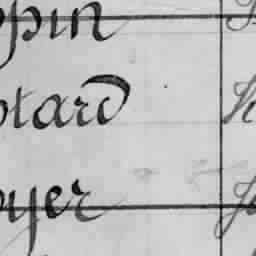 ppin
otard
oyer